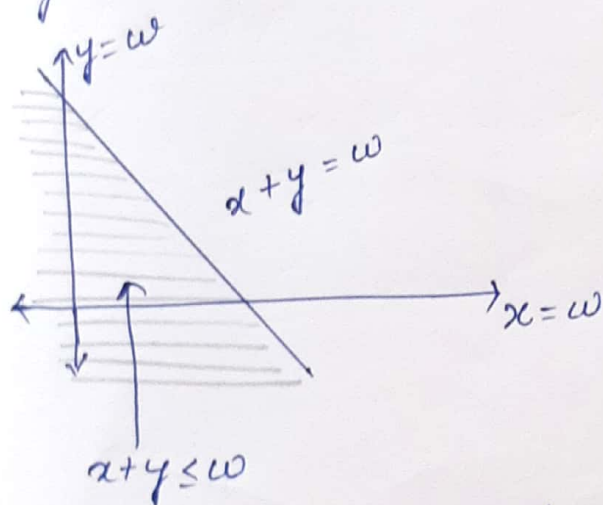 y = ω
x + y = ω
x = ω
x + y ≤ ω